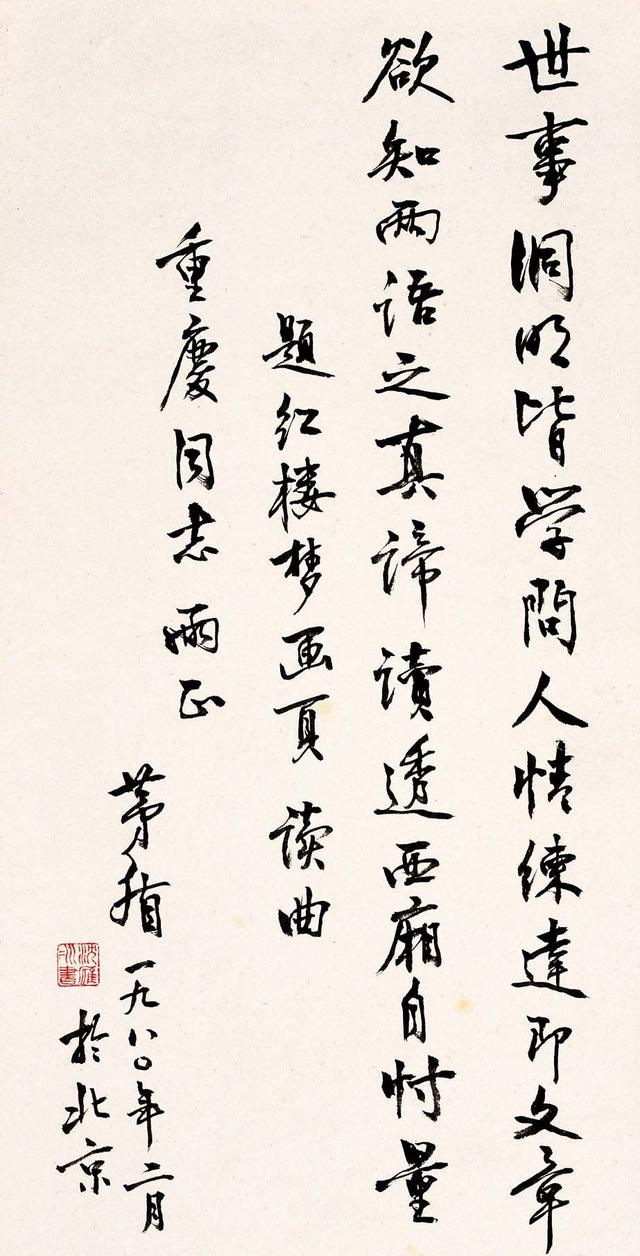 世事洞明皆学問人情練達即文章
欲知两语之真谛讀透西廂自忖量
題红楼梦画頁 读曲
重慶同志 正
茅盾 一九八〇年二月
於北京
沈雁冰書